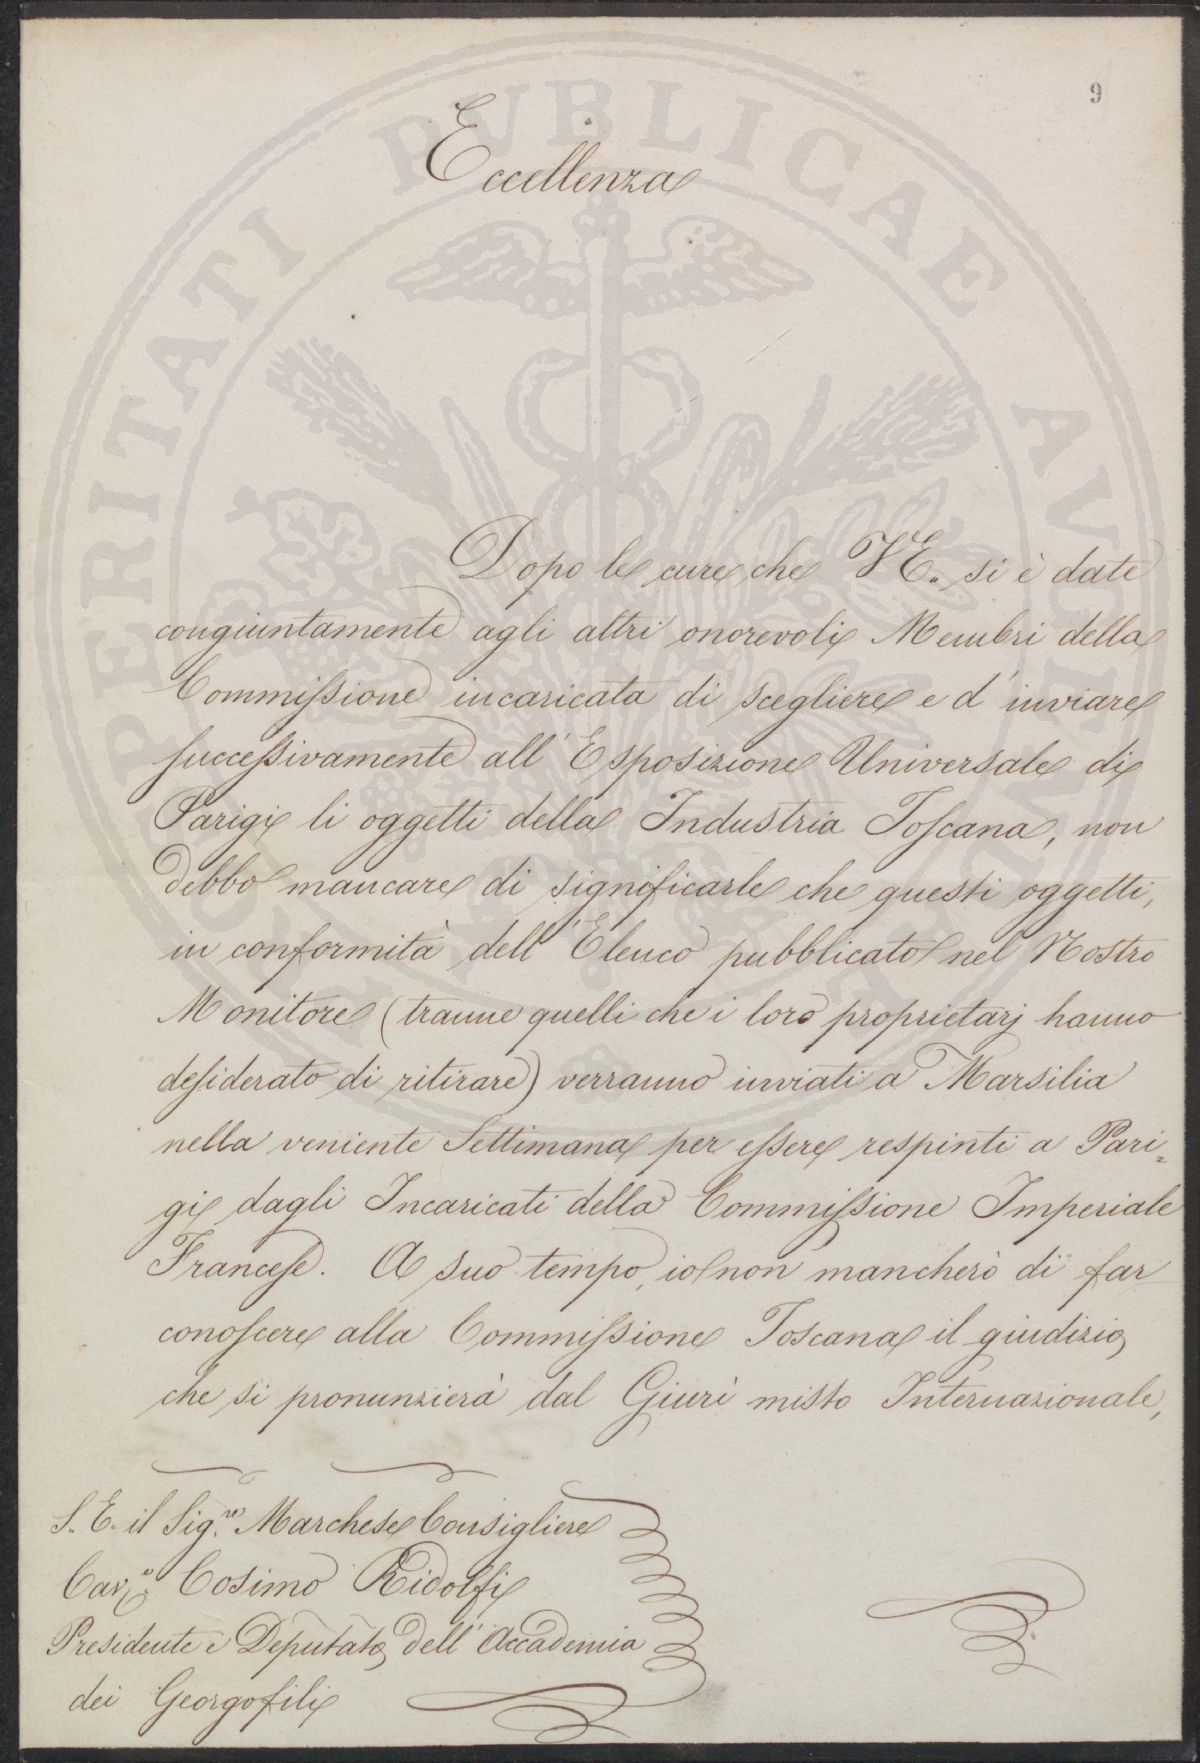 9
Eccellenza
Dopo le cure che V E. si è date
congiuntamente agli altri onorevoli Membri della
Commissione incaricata di scegliere e d'inviare
successivamente all'Esposizione Universale di
Parigi li oggetti della Industria Toscana, non
debbo mancare di significarle che questi oggetti,
in conformità dell'Elenco pubblicato nel Nostro
Monitore (tranne quelli che i loro proprietarj hanno
desiderato di ritirare) verranno inviati a Marsilia
nella veniente Settimana per essere respinti a Pari=
gi dagli Incaricati della Commissione Imperiale
Francese. A suo tempo, io non mancherò di far
conoscere alla Commissione Toscana il giudizio,
che si pronunzierà dal Giurì misto Internazionale,
S. E. il Sig.re Marchese Consigliere
Cav.e Cosimo Ridolfi
Presidente e Deputato dell'Accademia
dei Georgofili
PROSPERITATI PUBLICAE AUGENDAE